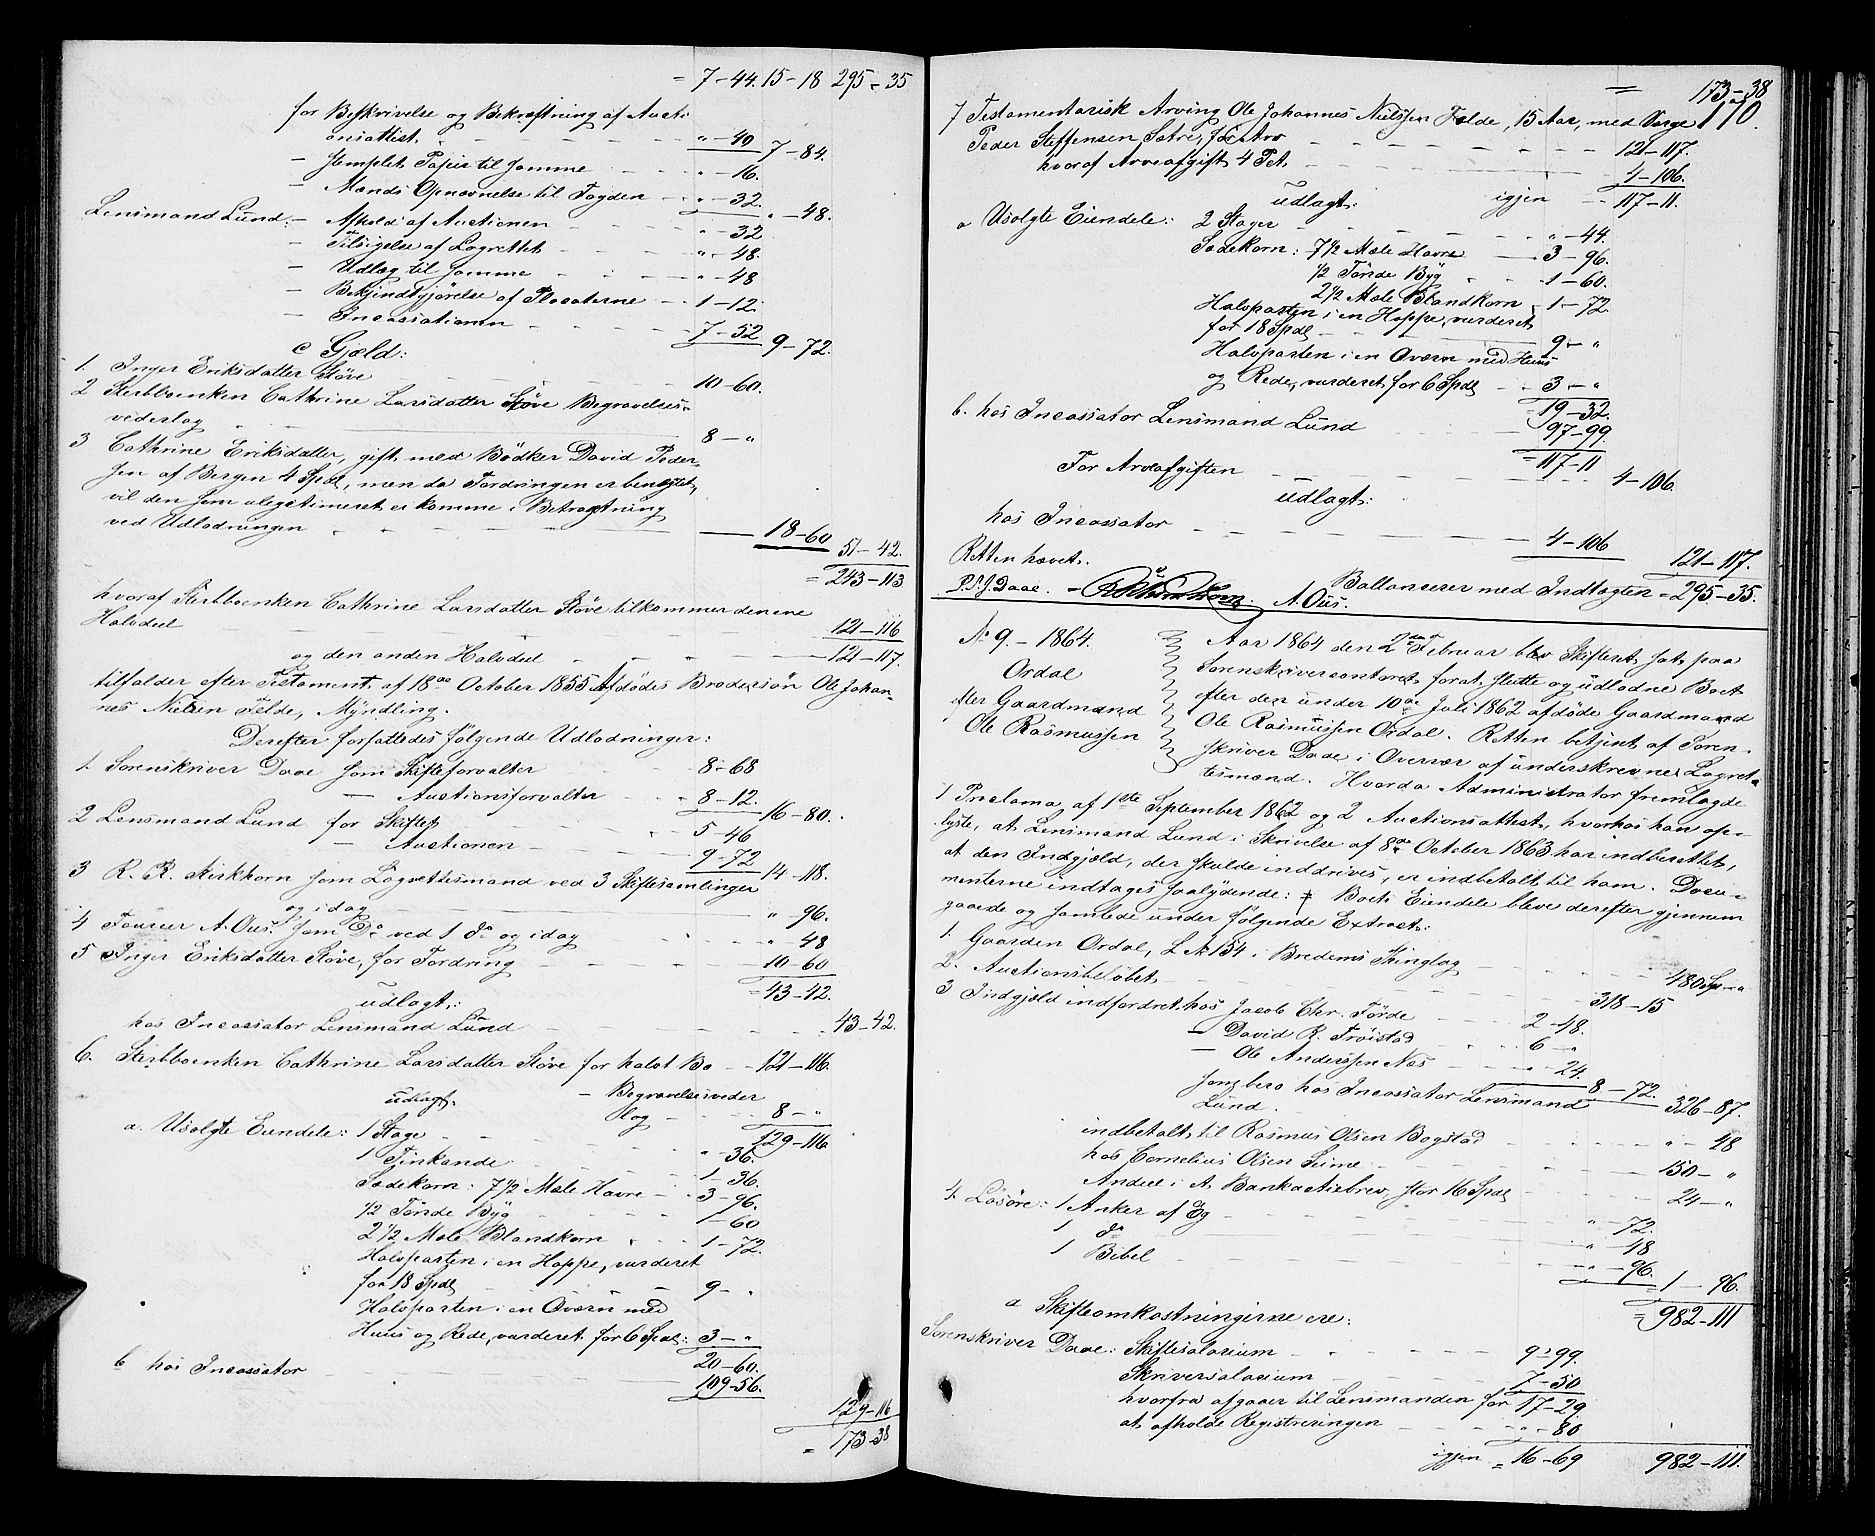 = 7-44. 15-18 295-35
for Beskrivelse og Bekræftning af Aucti
onsattest. " -40 7-84.
- stemplet Papir til samme " -16.
- Mænds Opnævnelse til Fogden " -32. " -48.
Lensmand Lund: - Afhold af Auctionen " -32
- Tilsigelse af Lagrettet " -48.
- Udlæg til samme " -48
- Bekjendtgjørelse af Placaterne 1-12.
- Incassationen 7-52 9-72.
c Gjæld:
1. Inger Eriksdatter Støve 10-60.
2 Sterboenken Cathrine Larsdatter Støve Begravelses-
vederlag 8-"
3 Cathrine Eriksdatter, gift med Bødker David Peder-
sen af Bergen 4 Spd, men da Fordringen er benegtet,
vil den som ulegitimeret ei komme i Betragtning
ved Udlodningen 18-60 51-42.
= 243-113
hvoraf Sterboenken Cathrine Larsdatter Støve tilkommer den ene
Halvdel 121-116
og den anden Halvdel 121-117.
tilfalder efter Testament af 18de October 1855 Afdødes Brodersøn Ole Johan-
nes Nielsen Felde, Myndling.
Derefter forfattedes følgende Udlodninger:
1. Sorenskriver Daae som Skifteforvalter 8-68
- Auctionsforvalter 8-12. 16-80.
2 Lensmand Lund for Skiftet 5-46
- Auctionen 9-72 14-118.
3 R. R. Kirkhorn som Lagrettesmand ved 3 Skiftesamlinger
og idag " 96.
4 Fourier A. Ous. som Do ved 1 do og idag " -48
5 Inger Eriksdatter Støve, for Fordring 10-60
= 43-42.
udlagt:
hos Incassator Lensmand Lund 43-42.
6. Sterboenken Cathrine Larsdatter Støve for halvt Bo 121-116.
udlagt. - Begravelsesveder
lag 8-"
a. Usolgte Eiendele: 1 Stage 129-116
" -36.
1 Tinkande 1-36.
Sædekorn: 7 1/2 Mæle Havre 3-96.
1/2 Tønde Byg 1-60
2 1/2 Mæle Blandkorn 1-72.
Halvparten i en Hoppe, vurderet
for 18 Spd 9-"
Halvparten i en Qværn med
Huus og Rede, vurderet for 6 Spd: 3-"
20-60.
b hos Incassator 109-56.
129-116
= 173-38
= 173-38
170.
7 Testamentarisk Arving Ole Johannes Nielssen Felde, 15 Aar, med Værge
Peder Steffensen Sætre, for Arv 121-117.
hvoraf Arveafgift 4 Pct 4-106.
udlagt: igjen 117-11.
a Usolgte Eiendele: 2 Stager " -44.
Sædekorn: 7 1/2 Mæle Havre 3-96.
1/2 Tønde Byg 1-60.
2 1/2 Mæle Blandkorn 1-72.
Halvparten i en Hoppe, vurderet
for 18 Spd 9-"
Halvparten i en Qværn med Huus
og Rede, vurderet for 6 Spd 3-"
19-32.
b. hos Incassator Lensmand Lund 97-99.
= 117-11
For Arveafgiften 4-106.
udlagt:
hos Incassator 4-106 121-117.
Retten hævet. Ballancerer med Indtægten = 295-35.
P. S. J. Daae. A. Ous.
No 9. - 1864.
Ordal
efter Gaardmand
Ole Rasmussen
Aar 1864 den 2den Februar blev Skifteret sat paa
Sorenskrivercontoret forat slutte og udlodne Boet
efter den under 10de Juli 1862 afdøde Gaardmand
Ole Rasmussen Ordal. Retten betjent af Soren-
skriver Daae i Overvær af underskrevne Lagret-
tesmænd. Hvorda Administrator fremlagde
1 Proclama af 1ste September 1862 og 2 Auctionsattest, hvorhos han op-
lyste, at Lensmand Lund i Skrivelse af 8de October 1863 har indberettet,
at den Indgjæld, der skulde inddrives, er indbetalt til ham. Docu-
menterne indtages saalydende: Boets Eiendele bleve derefter gjennem
gaaede og samlede under følgende Extract:
1. Gaarden Ordal, L No 154 i Bredems Thinglag 480 Sp-"
2. Auctionsbeløbet 318-15
3 Indgjæld indfordret hos Jacob Chr. Førde 2-48.
- David R. Frøistad 6-"
- Ole Anderssen Nøs " -24.
som bero hos Incassator Lensmand 8-72.
Lund. 326-87.
indbetalt til Rasmus Olsen Bogstad " -48
hos Cornelius Olsen Seime 150-"
Andeel i A. Bankactiebrev, stor 16 Spd 24-"
4. Løsøre: 1 Anker af Eg " 72.
1 do " -48
1 Bibel " -96. 1-96.
= 982-111
a Skifteomkostningerne ere:
Sorenskriver Daae: Skiftesalarium 9-99.
Skriversalarium 7-50
hvorfra afgaaer til Lensmanden for 17-29
at afholde Registreringen " -80
igjen = 16-69 982-111.